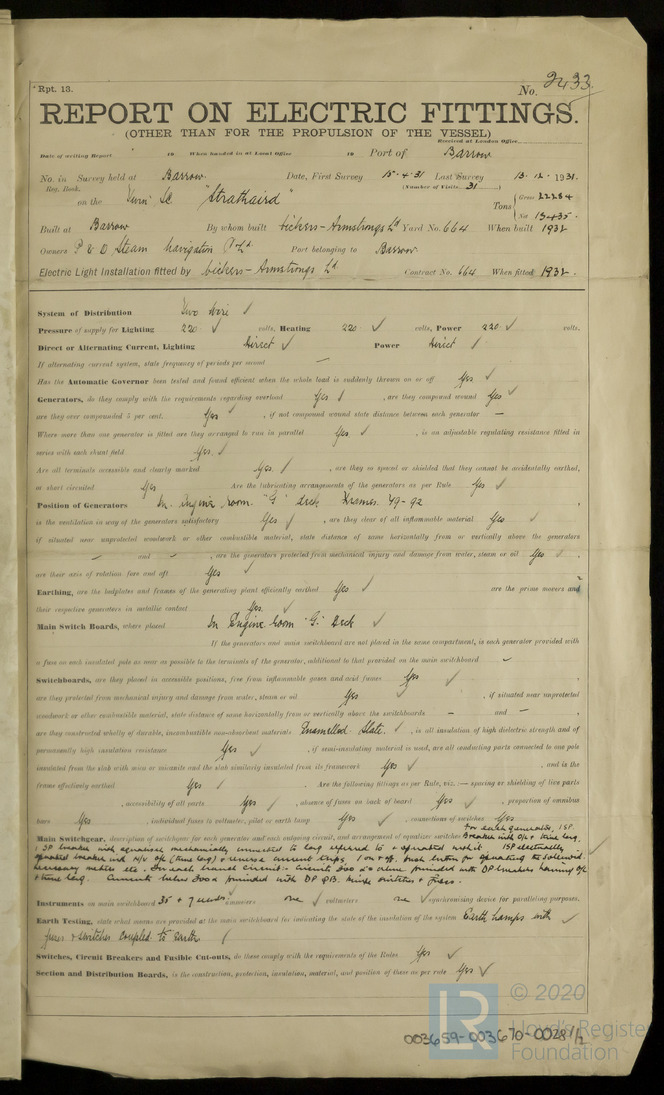 Rpt. 13.
No. 2433
REPORT ON ELECTRIC FITTINGS.
(OTHER THAN FOR THE PROPULSION OF THE VESSEL)
Received at London Office
Date of writing Report 19 When handed in at Local Office 19 Port of Barrow
No. in Survey held at Barrow. Date, First Survey 15-4-31 Last Survey 13.12.1931.
Reg. Book. (Number of Visits 31)
on the "Strathaird" Tons { Gross 22284
Net 13435.
Built at Barrow By whom built Vickers-Armstrongs Ld Yard No. 664 When built 1932
Owners P & O Steam Navigation Co Ld Port belonging to Barrow
Electric Light Installation fitted by Vickers-Armstrongs Ld Contract No. 664 When fitted 1932.
System of Distribution Two wire ✓
Pressure of supply for Lighting 220 ✓ volts, Heating 220 ✓ volts, Power 220 ✓ volts.
Direct or Alternating Current, Lighting Direct ✓ Power Direct ✓
If alternating current system, state frequency of periods per second —
Has the Automatic Governor been tested and found efficient when the whole load is suddenly thrown on or off Yes ✓
Generators, do they comply with the requirements regarding overload Yes ✓, are they compound wound Yes ✓
are they over compounded 5 per cent. Yes ✓, if not compound wound state distance between each generator —
Where more than one generator is fitted are they arranged to run in parallel Yes ✓, is an adjustable regulating resistance fitted in
series with each shunt field Yes. ✓
Are all terminals accessible and clearly marked Yes. ✓, are they so spaced or shielded that they cannot be accidentally earthed,
or short circuited Yes Are the lubricating arrangements of the generators as per Rule Yes ✓
Position of Generators In Engine room. "G" deck Frames 49-92
is the ventilation in way of the generators satisfactory Yes ✓, are they clear of all inflammable material Yes ✓
if situated near unprotected woodwork or other combustible material, state distance of same horizontally from or vertically above the generators
— and —, are the generators protected from mechanical injury and damage from water, steam or oil Yes ✓,
are their axis of rotation fore and aft Yes ✓
Earthing, are the bedplates and frames of the generating plant efficiently earthed Yes ✓ are the prime movers and
their respective generators in metallic contact Yes. ✓
Main Switch Boards, where placed In Engine room "G" Deck ✓
If the generators and main switchboard are not placed in the same compartment, is each generator provided with
a fuse on each insulated pole as near as possible to the terminals of the generator, additional to that provided on the main switchboard —
Switchboards, are they placed in accessible positions, free from inflammable gases and acid fumes Yes ✓,
are they protected from mechanical injury and damage from water, steam or oil Yes ✓, if situated near unprotected
woodwork or other combustible material, state distance of same horizontally from or vertically above the switchboards — and —,
are they constructed wholly of durable, incombustible non-absorbent materials Enamelled Slate. ✓, is all insulation of high dielectric strength and of
permanently high insulation resistance Yes ✓, if semi-insulating material is used, are all conducting parts connected to one pole
insulated from the slab with mica or micanite and the slab similarly insulated from its framework Yes ✓, and is the
frame effectively earthed Yes ✓ Are the following fittings as per Rule, viz. — spacing or shielding of live parts
, accessibility of all parts Yes ✓, absence of fuses on back of board Yes ✓, proportion of omnibus
bars Yes ✓, individual fuses to voltmeter, pilot or earth lamp Yes ✓, connections of switches Yes ✓
Main Switchgear, description of switchgear for each generator and each outgoing circuit, and arrangement of equaliser switches For each generator, 1 SP
breaker with O/L + time lag,
1 SP breaker with equaliser mechanically connected to long referred to & operated with it. 1 SP electrically
operated breaker with N/V O/L (time lag) + reverse current trips, 1 on & off. push button for operating the solenoid.
necessary meters etc. On each branch circuit:- Circuits 300 & above provided with DP breakers having O/L
+ time lag. Circuits below 300A provided with DP QB. knife switches + fuses.
Instruments on main switchboard 35 + 7 ammeters one ✓ voltmeters one ✓ synchronising device for paralleling purposes.
Earth Testing, state what means are provided at the main switchboard for indicating the state of the insulation of the system Earth lamps with ✓
fuses + switches coupled to earth ✓
Switches, Circuit Breakers and Fusible Cut-outs, do these comply with the requirements of the Rules Yes ✓
Section and Distribution Boards, is the construction, protection, insulation, material, and position of these as per rule Yes ✓
003659-003670-0028 1/2
LR
© 2020
Lloyd's Register
Foundation